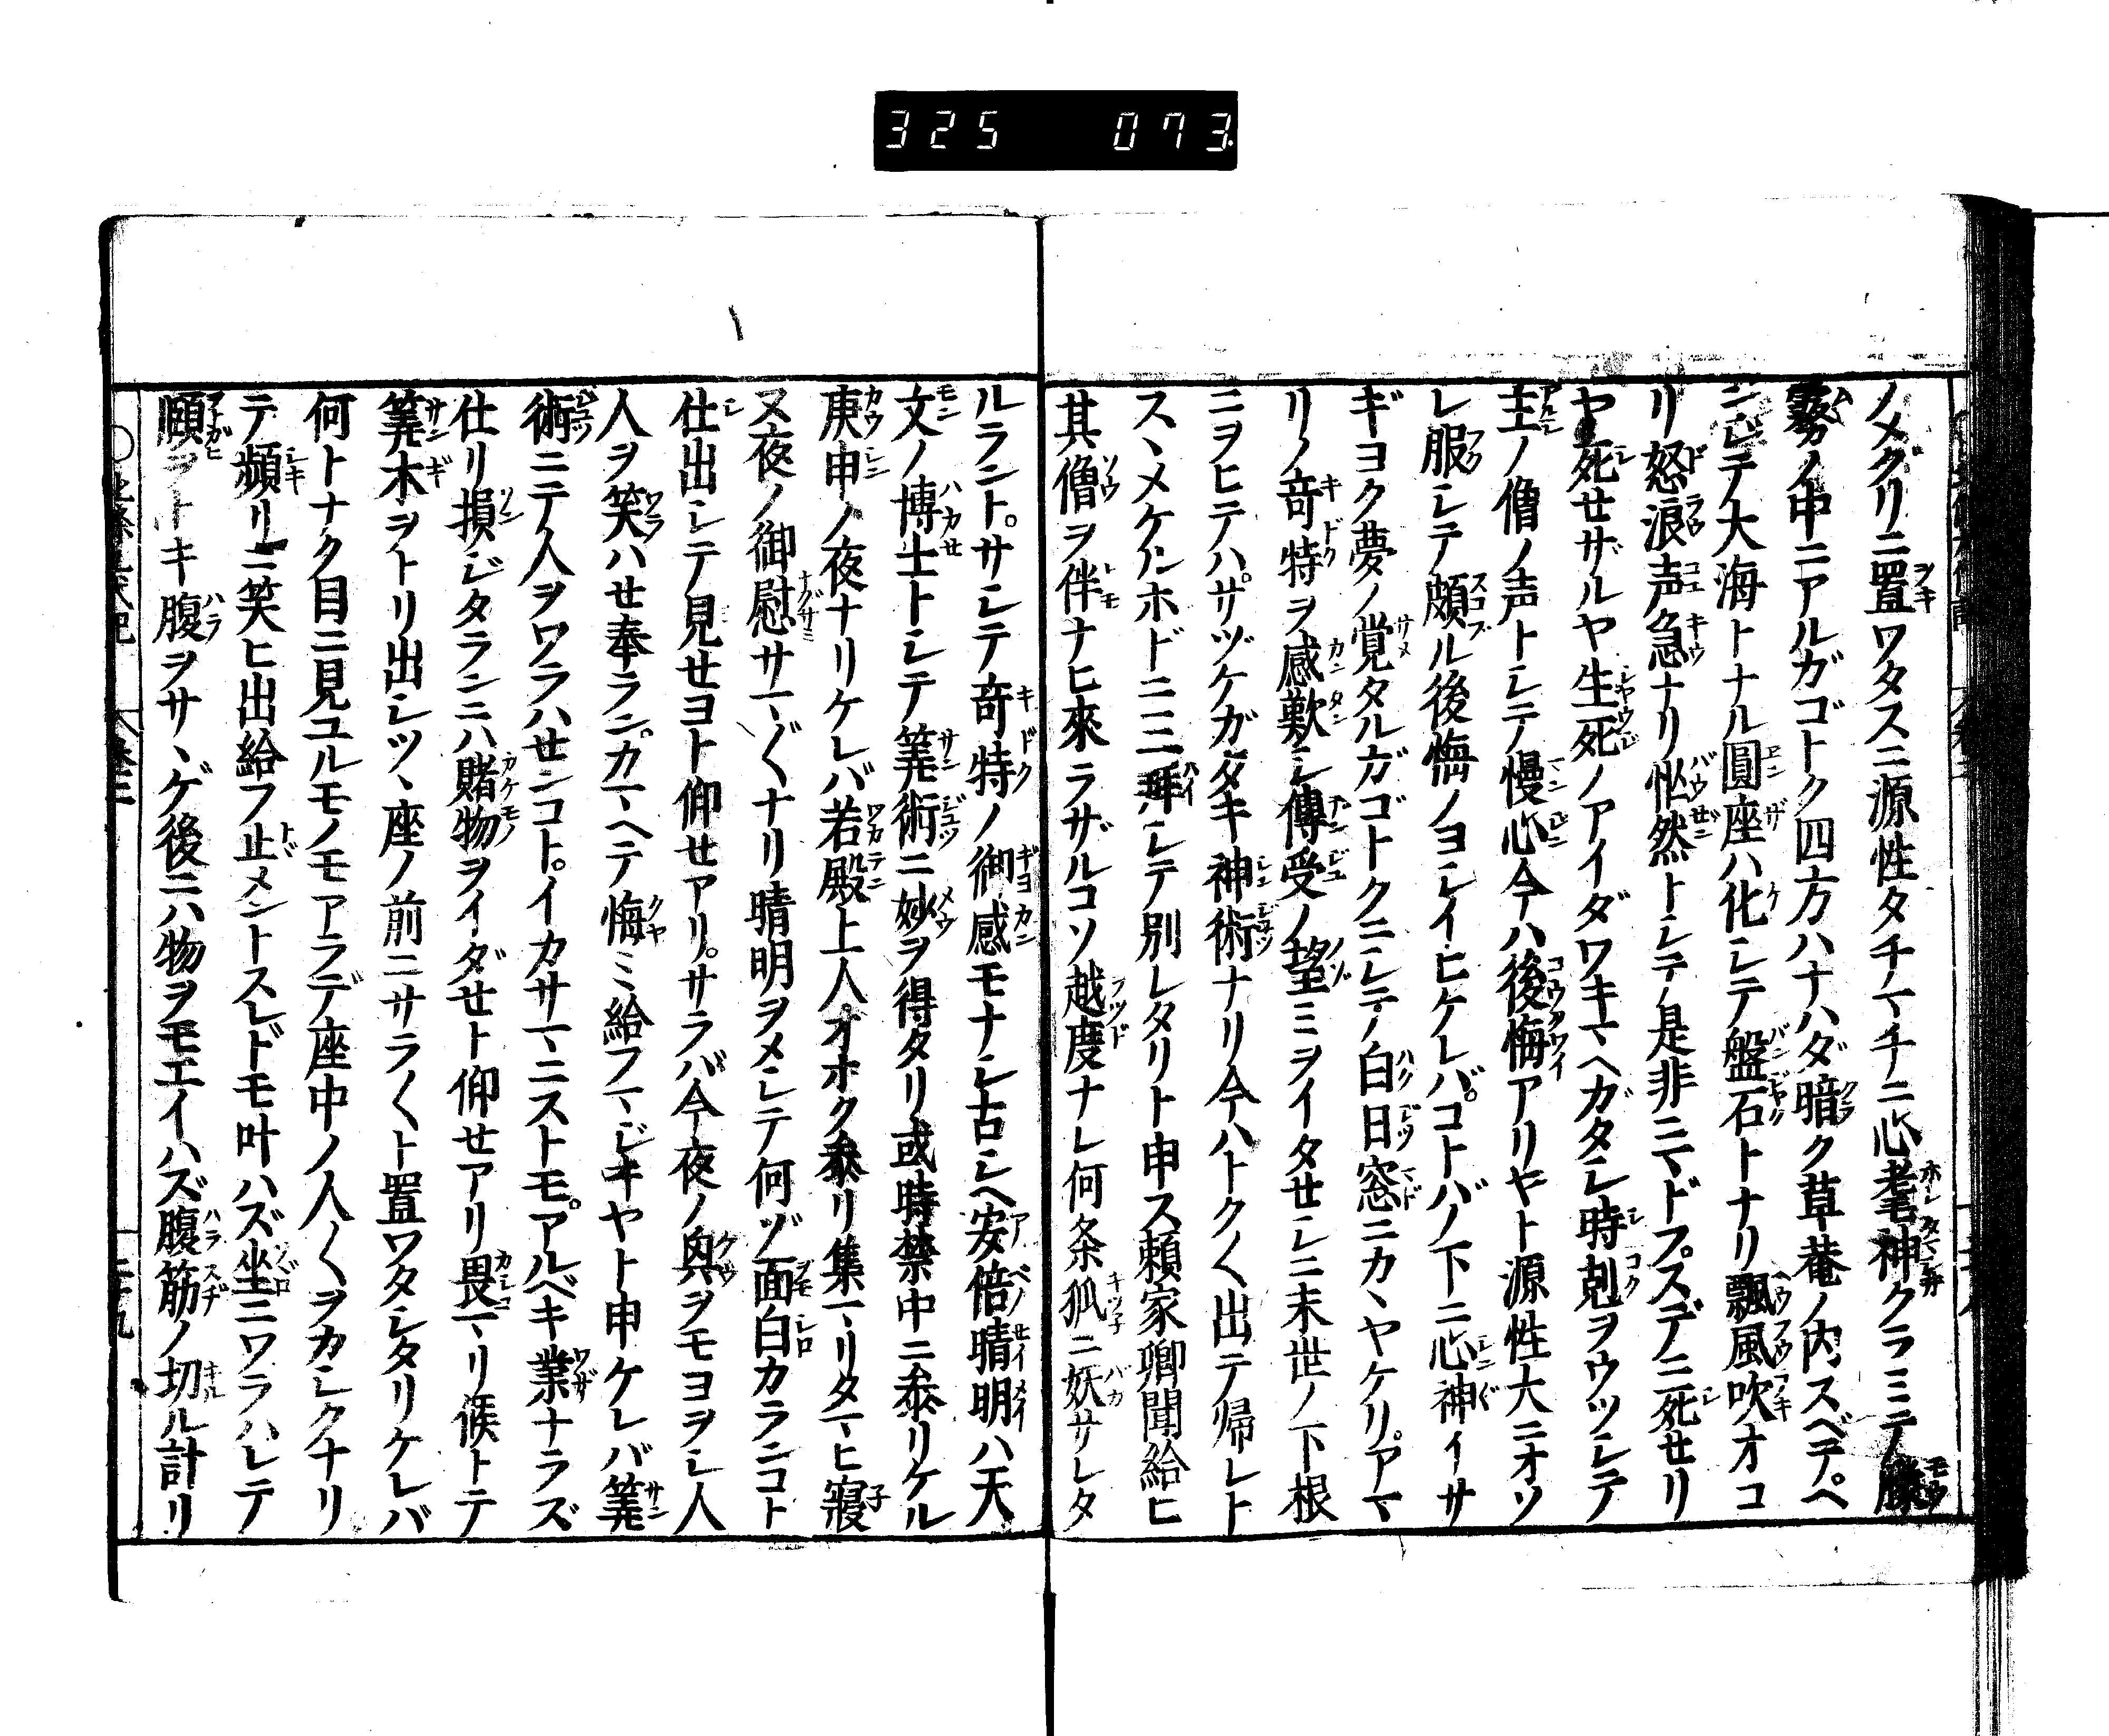 325 073
ノメグリニ置ワタスニ源性タチマチニ心耄神クラミテ朦
霧ノ中ニアルガゴトク四方ハナハダ暗ク草菴ノ内スベテヘ
ンジテ大海トナル圓座ハ化シテ盤石トナリ飄風吹オコ
リ怒浪声急ナリ恾然トシテ是非ニマドフスデニ死セリ
ヤ死セザルヤ生死ノアイダワキマヘガタシ時剋ヲウツシテ
主ノ僧ノ声トシテ慢心今ハ後悔アリヤト源性大ニオソ
レ服シテ頗ル後悔ノヨシイヒケレバコトバノ下ニ心神イサ
ギヨク夢ノ覚タルガゴトクニシテ白日窓ニカヽヤケリアマ
リノ竒特ヲ感歎シ傳受ノ望ミヲイタセシニ末世ノ下根
ニヲヒテハサヅケガタキ神術ナリ今ハトク〱出テ帰レト
スヽメケルホドニ三拜シテ別レタリト申ス頼家卿聞給ヒ
其僧ヲ伴ナヒ來ラザルコソ越度ナレ何条狐ニ妖サレタ
ルラントサシテ竒特ノ御感モナシ古シヘ安倍晴明ハ天
文ノ博士トシテ筭術ニ妙ヲ得タリ或時禁中ニ參リケル
庚申ノ夜ナリケレバ若殿上人オホク參リ集マリタマヒ寢
ヌ夜ノ御慰サマ〲ナリ晴明ヲメシテ何ゾ面白カランコト
仕出シテ見セヨト仰セアリサラバ今夜ノ興ヲモヨヲシ人
人ヲ笑ハセ奉ランカマヘテ悔ミ給フマジキヤト申ケレバ筭
術ニテ人ヲワラハセンコトイカサマニストモアルベキ業ナラズ
仕リ損ジタランニハ賭物ヲイダセト仰セアリ畏マリ候トテ
筭木ヲトリ出シツヽ座ノ前ニサラ〱ト置ワタシタリケレバ
何トナク目ニ見ユルモノモアラデ座中ノ人〱ヲカシクナリ
テ頻リニ笑ヒ出給フ止メントスレドモ叶ハズ坐ニワラハレテ
頤ヲトキ腹ヲサヽゲ後ニハ物ヲモエイハズ腹筋ノ切ル計リ